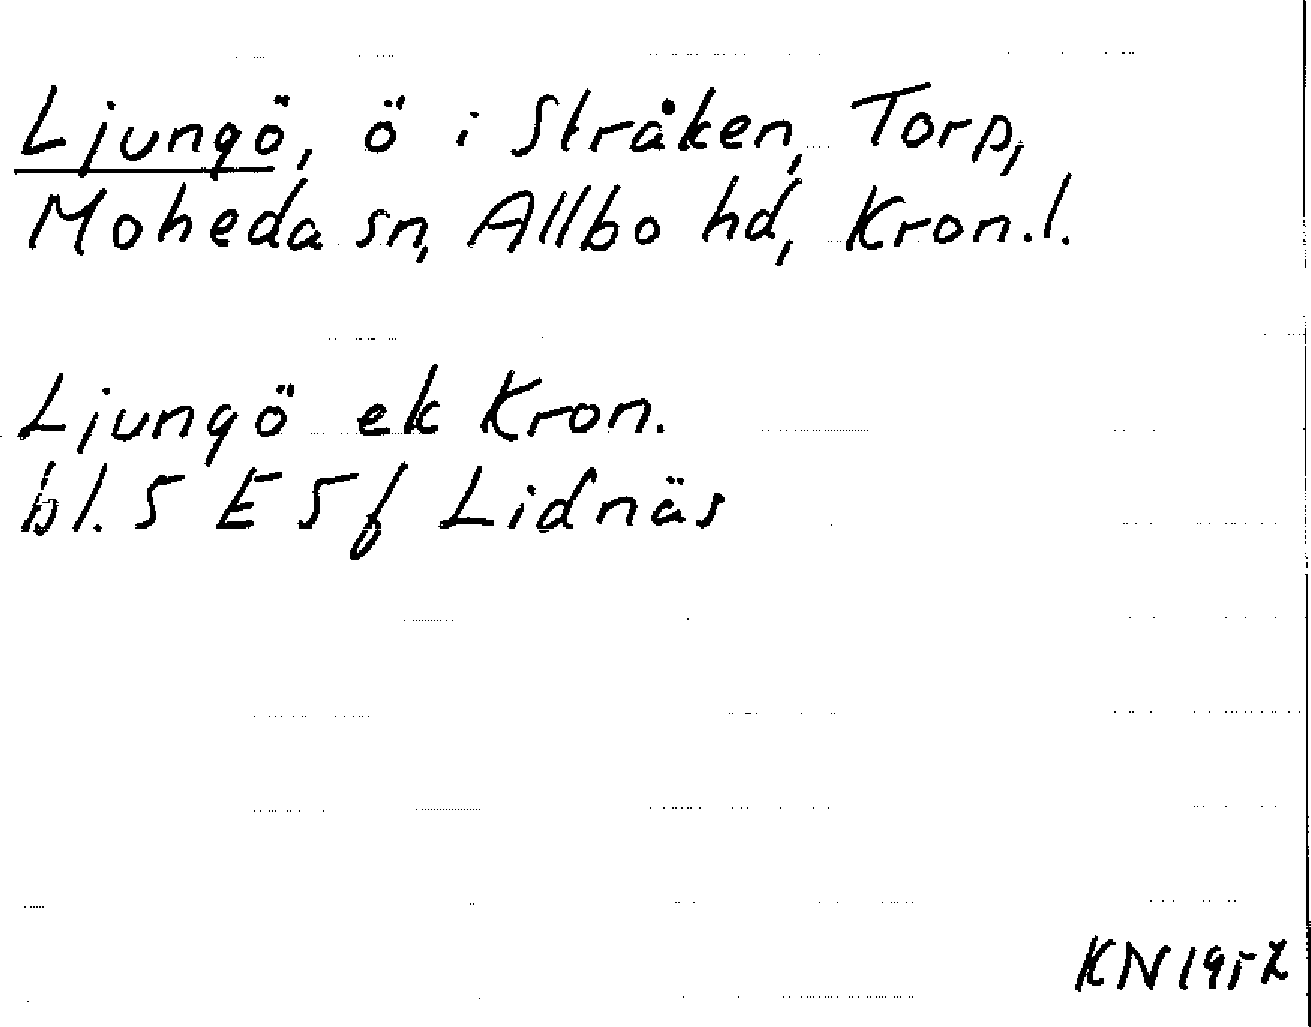 Ljungö, ö i Stråken, Torp,
Moheda sn, Allbo hd, Kron.l.
Ljungö ek Kron.
bl. 5 E 5f Lidnäs
KN 1952